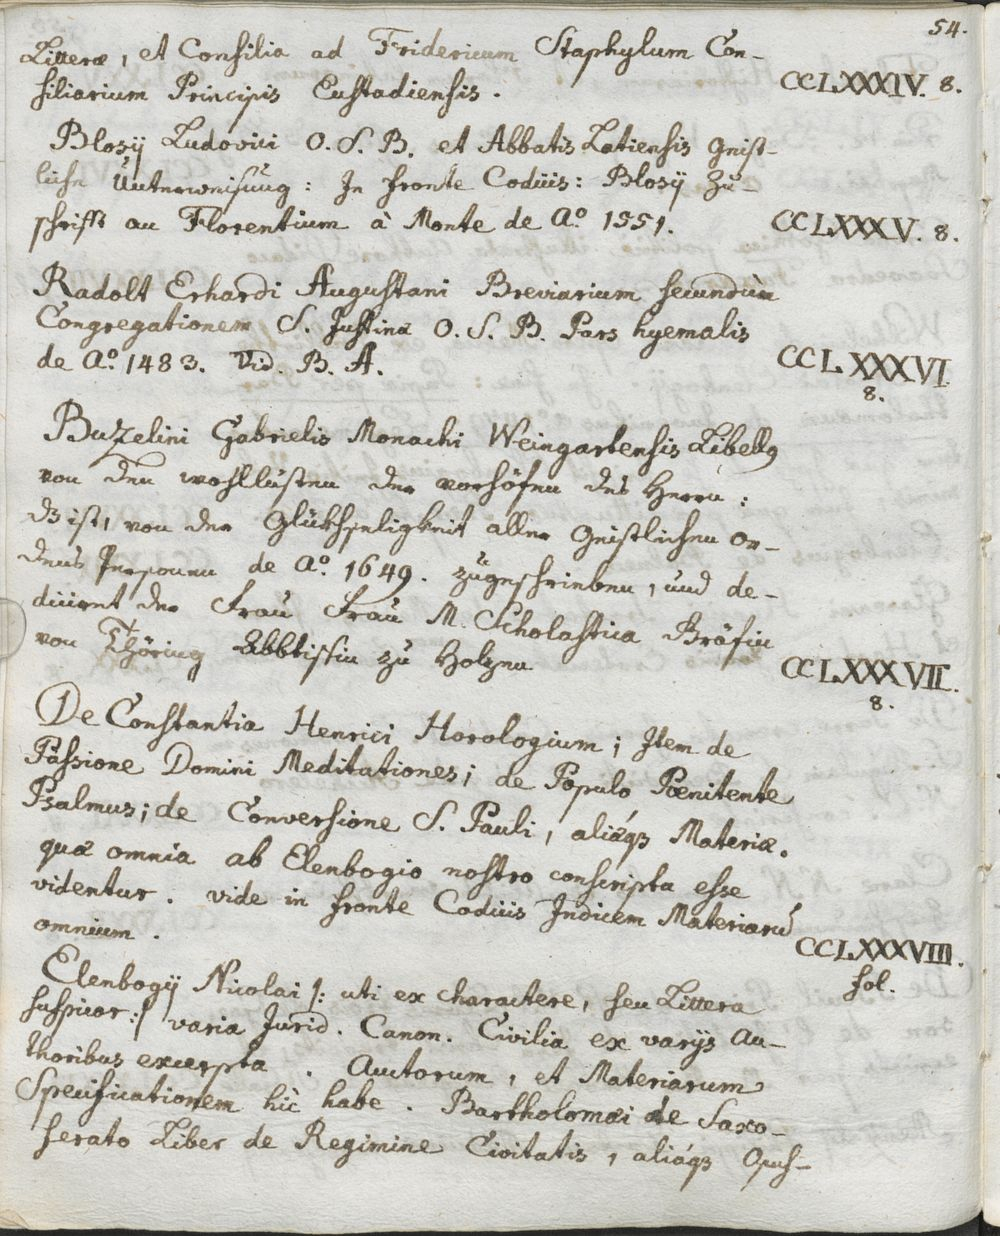 54.
Litteræ, et Consilia ad Fridericum Staphylum Con-
siliarium Principis Eustadiensis. CCLXXXIV. 8.
Blosij Ludovici O. S. B. et Abbatis Latiensis Geist-
liche Unterweisung: In fronte Codicis: Blosij Zu
schrifft an Florentium à Monte de Aº 1551. CCLXXXV. 8.
Radolt Erhardi Augustani Breviarium secundùm
Congregationem S. Justinæ O. S. B. Pars hyemalis
de Aº. 1483. Vid. B. A. CCLXXXVI
8.
Buzzelini Gabrielis Monachi Weingartensis Libellg
von den wohllusten der vorhöfen des Herrn:
ds ist, von der Glükhseligkeit aller Geistlichen Or-
dens Persounen de Aº. 1649. zugeschrieben, und de-
diciert der Frau Frau M. Scholastica Gräfin
von Thöring Abbtissin zu Holzen CCLXXXVII.
8.
De Constantia Henrici Horologium; Item de
Passione Domini Meditationes; de Populo Pœnitente
Psalmus; de Conversione S. Pauli, aliáqz Materiæ.
quæ omnia ab Elenbogio nostro conscripta esse
videntur. vide in fronte Codicis Indicem Materiarū
omnium. CCLXXXVIII.
fol.
Elenbogij Nicolai /: uti ex charactere, seu Littera
suspicor :/ varia Jurid. Canon. Civilia ex varijs Au-
thoribus excerpta. Auctorum, et Materiarum
Specificationem hîc habe. Bartholomæi de Saxo-
ferato Liber de Regimine Civitatis, aliáqz Opus-